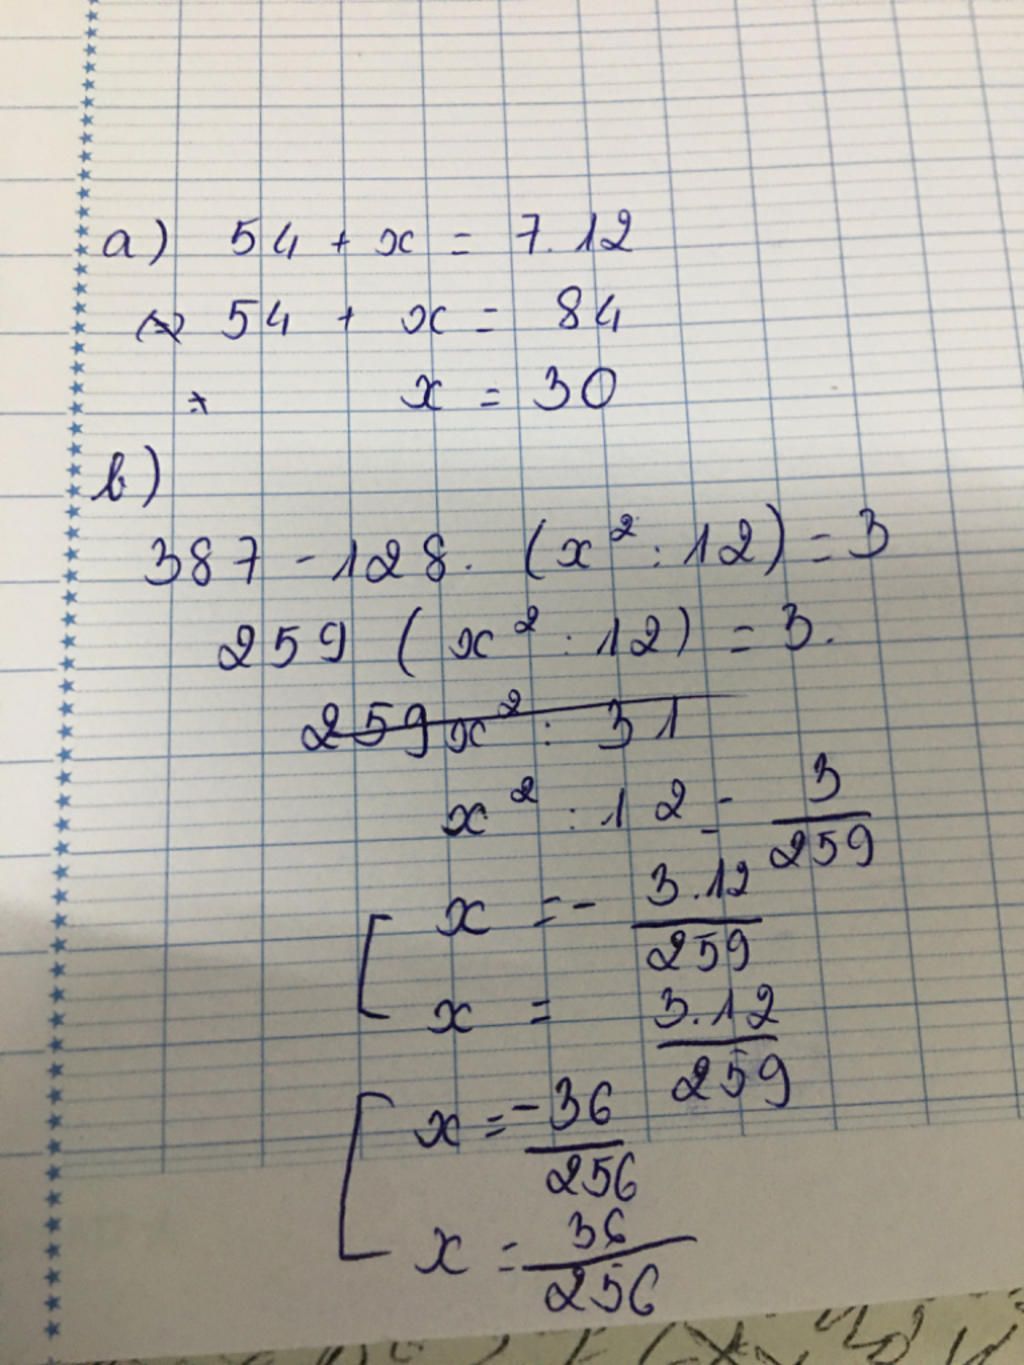 a) 54 + x = 7.12
(=> 54 + x = 84
x = 30
b)
387 - 128. (x² : 12) = 3
259 (x² : 12) = 3.
259x² : 31
x² : 12 = 3/259
x = - 3.12/259
x = 3.12/259
x = -36/256
x = 36/256